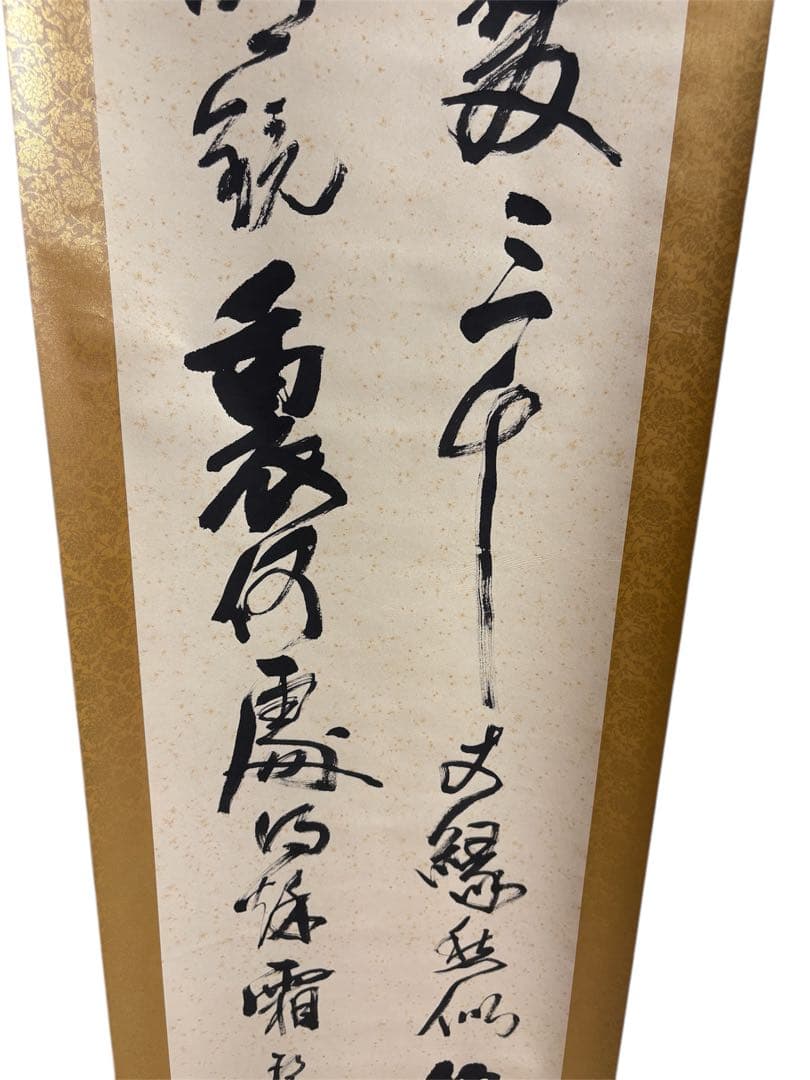 髮三千丈縁愁似
明鏡裏何處得秋霜